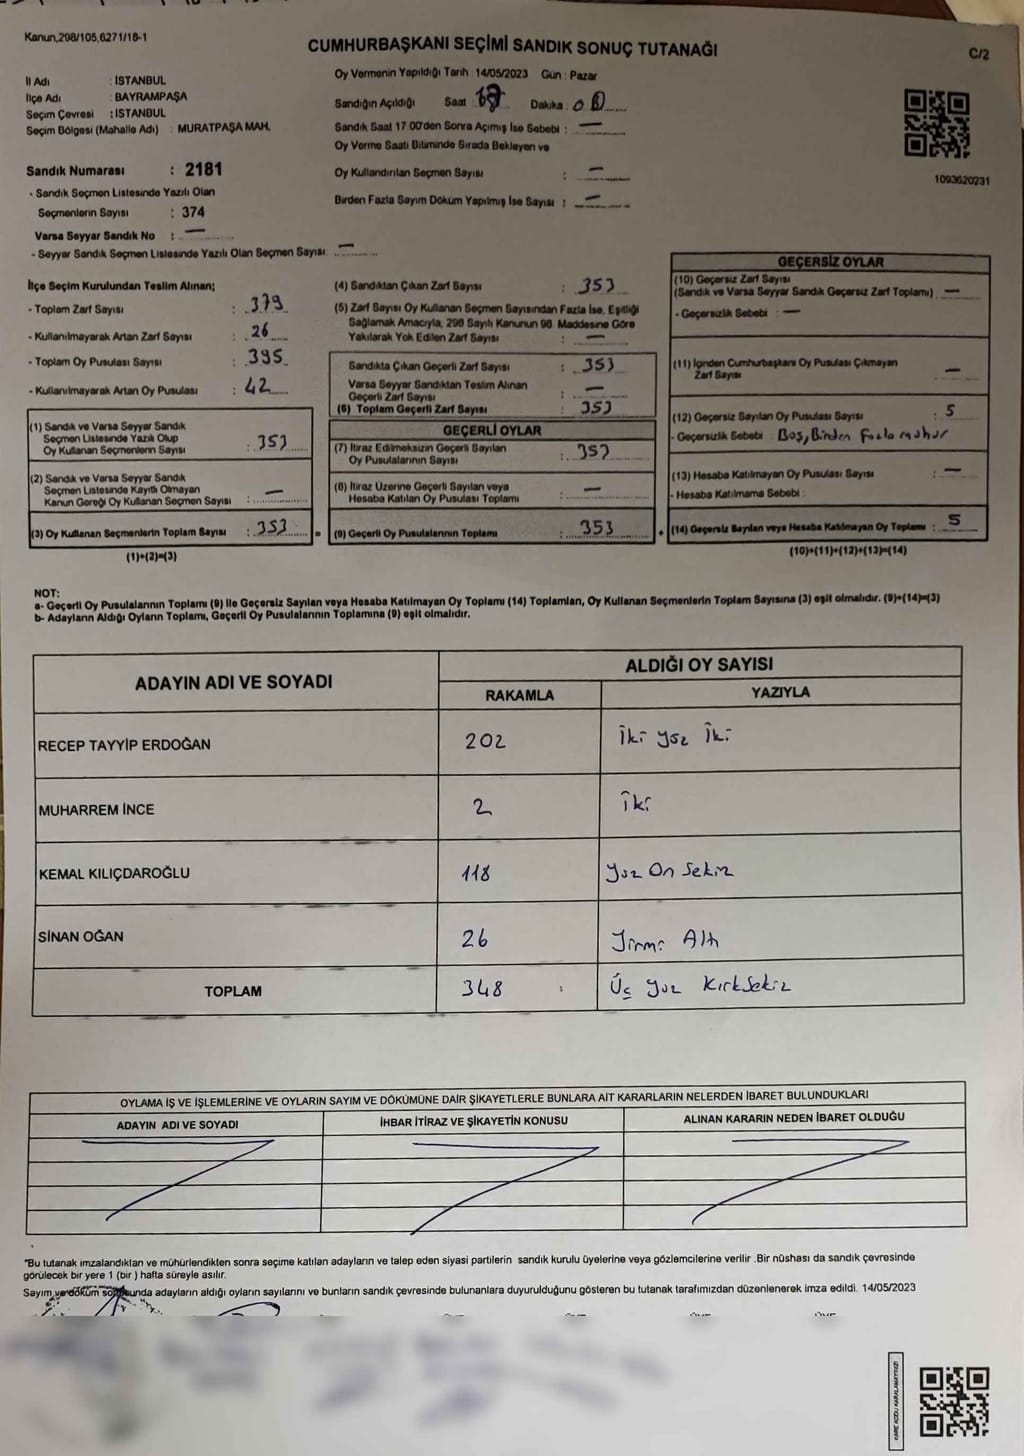 Kanun,298/105,6271/18-1
CUMHURBAŞKANI SEÇİMİ SANDIK SONUÇ TUTANAĞI
C/2
İl Adı : İSTANBUL
İlçe Adı : BAYRAMPAŞA
Seçim Çevresi : İSTANBUL
Seçim Bölgesi (Mahalle Adı) : MURATPAŞA MAH.
Oy Vermenin Yapıldığı Tarih : 14/05/2023 Gün : Pazar
Sandığın Açıldığı Saat Dakika :
Sandık Saat 17 00'den Sonra Açımış İse Sebebi : —
Oy Verme Saati Bitiminde Sırada Bekleyen ve
Oy Kullandırılan Seçmen Sayısı : —
Birden Fazla Sayım Döküm Yapılmış İse Sayısı : —
1093620231
Sandık Numarası : 2181
- Sandık Seçmen Listesinde Yazılı Olan
Seçmenlerin Sayısı : 374
Varsa Seyyar Sandık No : —
- Seyyar Sandık Seçmen Listesinde Yazılı Olan Seçmen Sayısı: —
İlçe Seçim Kurulundan Teslim Alınan;
- Toplam Zarf Sayısı : 379
- Kullanılmayarak Artan Zarf Sayısı : 26
- Toplam Oy Pusulası Sayısı : 395
- Kullanılmayarak Artan Oy Pusulası : 42
(1) Sandık ve Varsa Seyyar Sandık
Seçmen Listesinde Yazılı Olup
Oy Kullanan Seçmenlerin Sayısı : 353
(2) Sandık ve Varsa Seyyar Sandık
Seçmen Listesinde Kayıtlı Olmayan
Kanun Gereği Oy Kullanan Seçmen Sayısı : —
(3) Oy Kullanan Seçmenlerin Toplam Sayısı : 353 =
(1)+(2)=(3)
(4) Sandıktan Çıkan Zarf Sayısı : 353
(5) Zarf Sayısı Oy Kullanan Seçmen Sayısından Fazla İse, Eşitliği
Sağlamak Amacıyla, 298 Sayılı Kanunun 98 Maddesine Göre
Yakılarak Yok Edilen Zarf Sayısı : —
Sandıkta Çıkan Geçerli Zarf Sayısı : 353
Varsa Seyyar Sandıktan Teslim Alınan
Geçerli Zarf Sayısı : —
(6) Toplam Geçerli Zarf Sayısı : 353
GEÇERLİ OYLAR
(7) İtiraz Edilmeksizin Geçerli Sayılan
Oy Pusulalarının Sayısı : 353
(8) İtiraz Üzerine Geçerli Sayılan veya
Hesaba Katılan Oy Pusulası Toplamı : —
(9) Geçerli Oy Pusulalarının Toplamı : 353 +
GEÇERSİZ OYLAR
(10) Geçersiz Zarf Sayısı
(Sandık ve Varsa Seyyar Sandık Geçersiz Zarf Toplamı) : —
- Geçersizlik Sebebi : —
(11) İçinden Cumhurbaşkanı Oy Pusulası Çıkmayan
Zarf Sayısı —
(12) Geçersiz Sayılan Oy Pusulası Sayısı : 5
- Geçersizlik Sebebi : Boş, Birden Fazla mühür
(13) Hesaba Katılmayan Oy Pusulası Sayısı : —
- Hesaba Katılmama Sebebi :
(14) Geçersiz Sayılan veya Hesaba Katılmayan Oy Toplamı : 5
(10)+(11)+(12)+(13)=(14)
NOT:
a- Geçerli Oy Pusulalarının Toplamı (9) ile Geçersiz Sayılan veya Hesaba Katılmayan Oy Toplamı (14) Toplamları, Oy Kullanan Seçmenlerin Toplam Sayısına (3) eşit olmalıdır. (9)+(14)=(3)
b- Adayların Aldığı Oyların Toplamı, Geçerli Oy Pusulalarının Toplamına (9) eşit olmalıdır.
ADAYIN ADI VE SOYADI
ALDIĞI OY SAYISI
RAKAMLA YAZIYLA
RECEP TAYYİP ERDOĞAN 202 İki yüz İki
MUHARREM İNCE 2 İki
KEMAL KILIÇDAROĞLU 118 Yüz On Sekiz
SİNAN OĞAN 26 Yirmi Altı
TOPLAM 348 : Üç yüz KırkSekiz
OYLAMA İŞ VE İŞLEMLERİNE VE OYLARIN SAYIM VE DÖKÜMÜNE DAİR ŞİKAYETLERLE BUNLARA AİT KARARLARIN NELERDEN İBARET BULUNDUKLARI
ADAYIN ADI VE SOYADI İHBAR İTİRAZ VE ŞİKAYETİN KONUSU ALINAN KARARIN NEDEN İBARET OLDUĞU
"Bu tutanak imzalandıktan ve mühürlendikten sonra seçime katılan adayların ve talep eden siyasi partilerin sandık kurulu üyelerine veya gözlemcilerine verilir .Bir nüshası da sandık çevresinde
görülecek bir yere 1 (bir ) hafta süreyle asılır.
Sayım ve döküm sonucunda adayların aldığı oyların sayılarını ve bunların sandık çevresinde bulunanlara duyurulduğunu gösteren bu tutanak tarafımızdan düzenlenerek imza edildi. 14/05/2023
KARE KODU KARALAMAYINIZ!